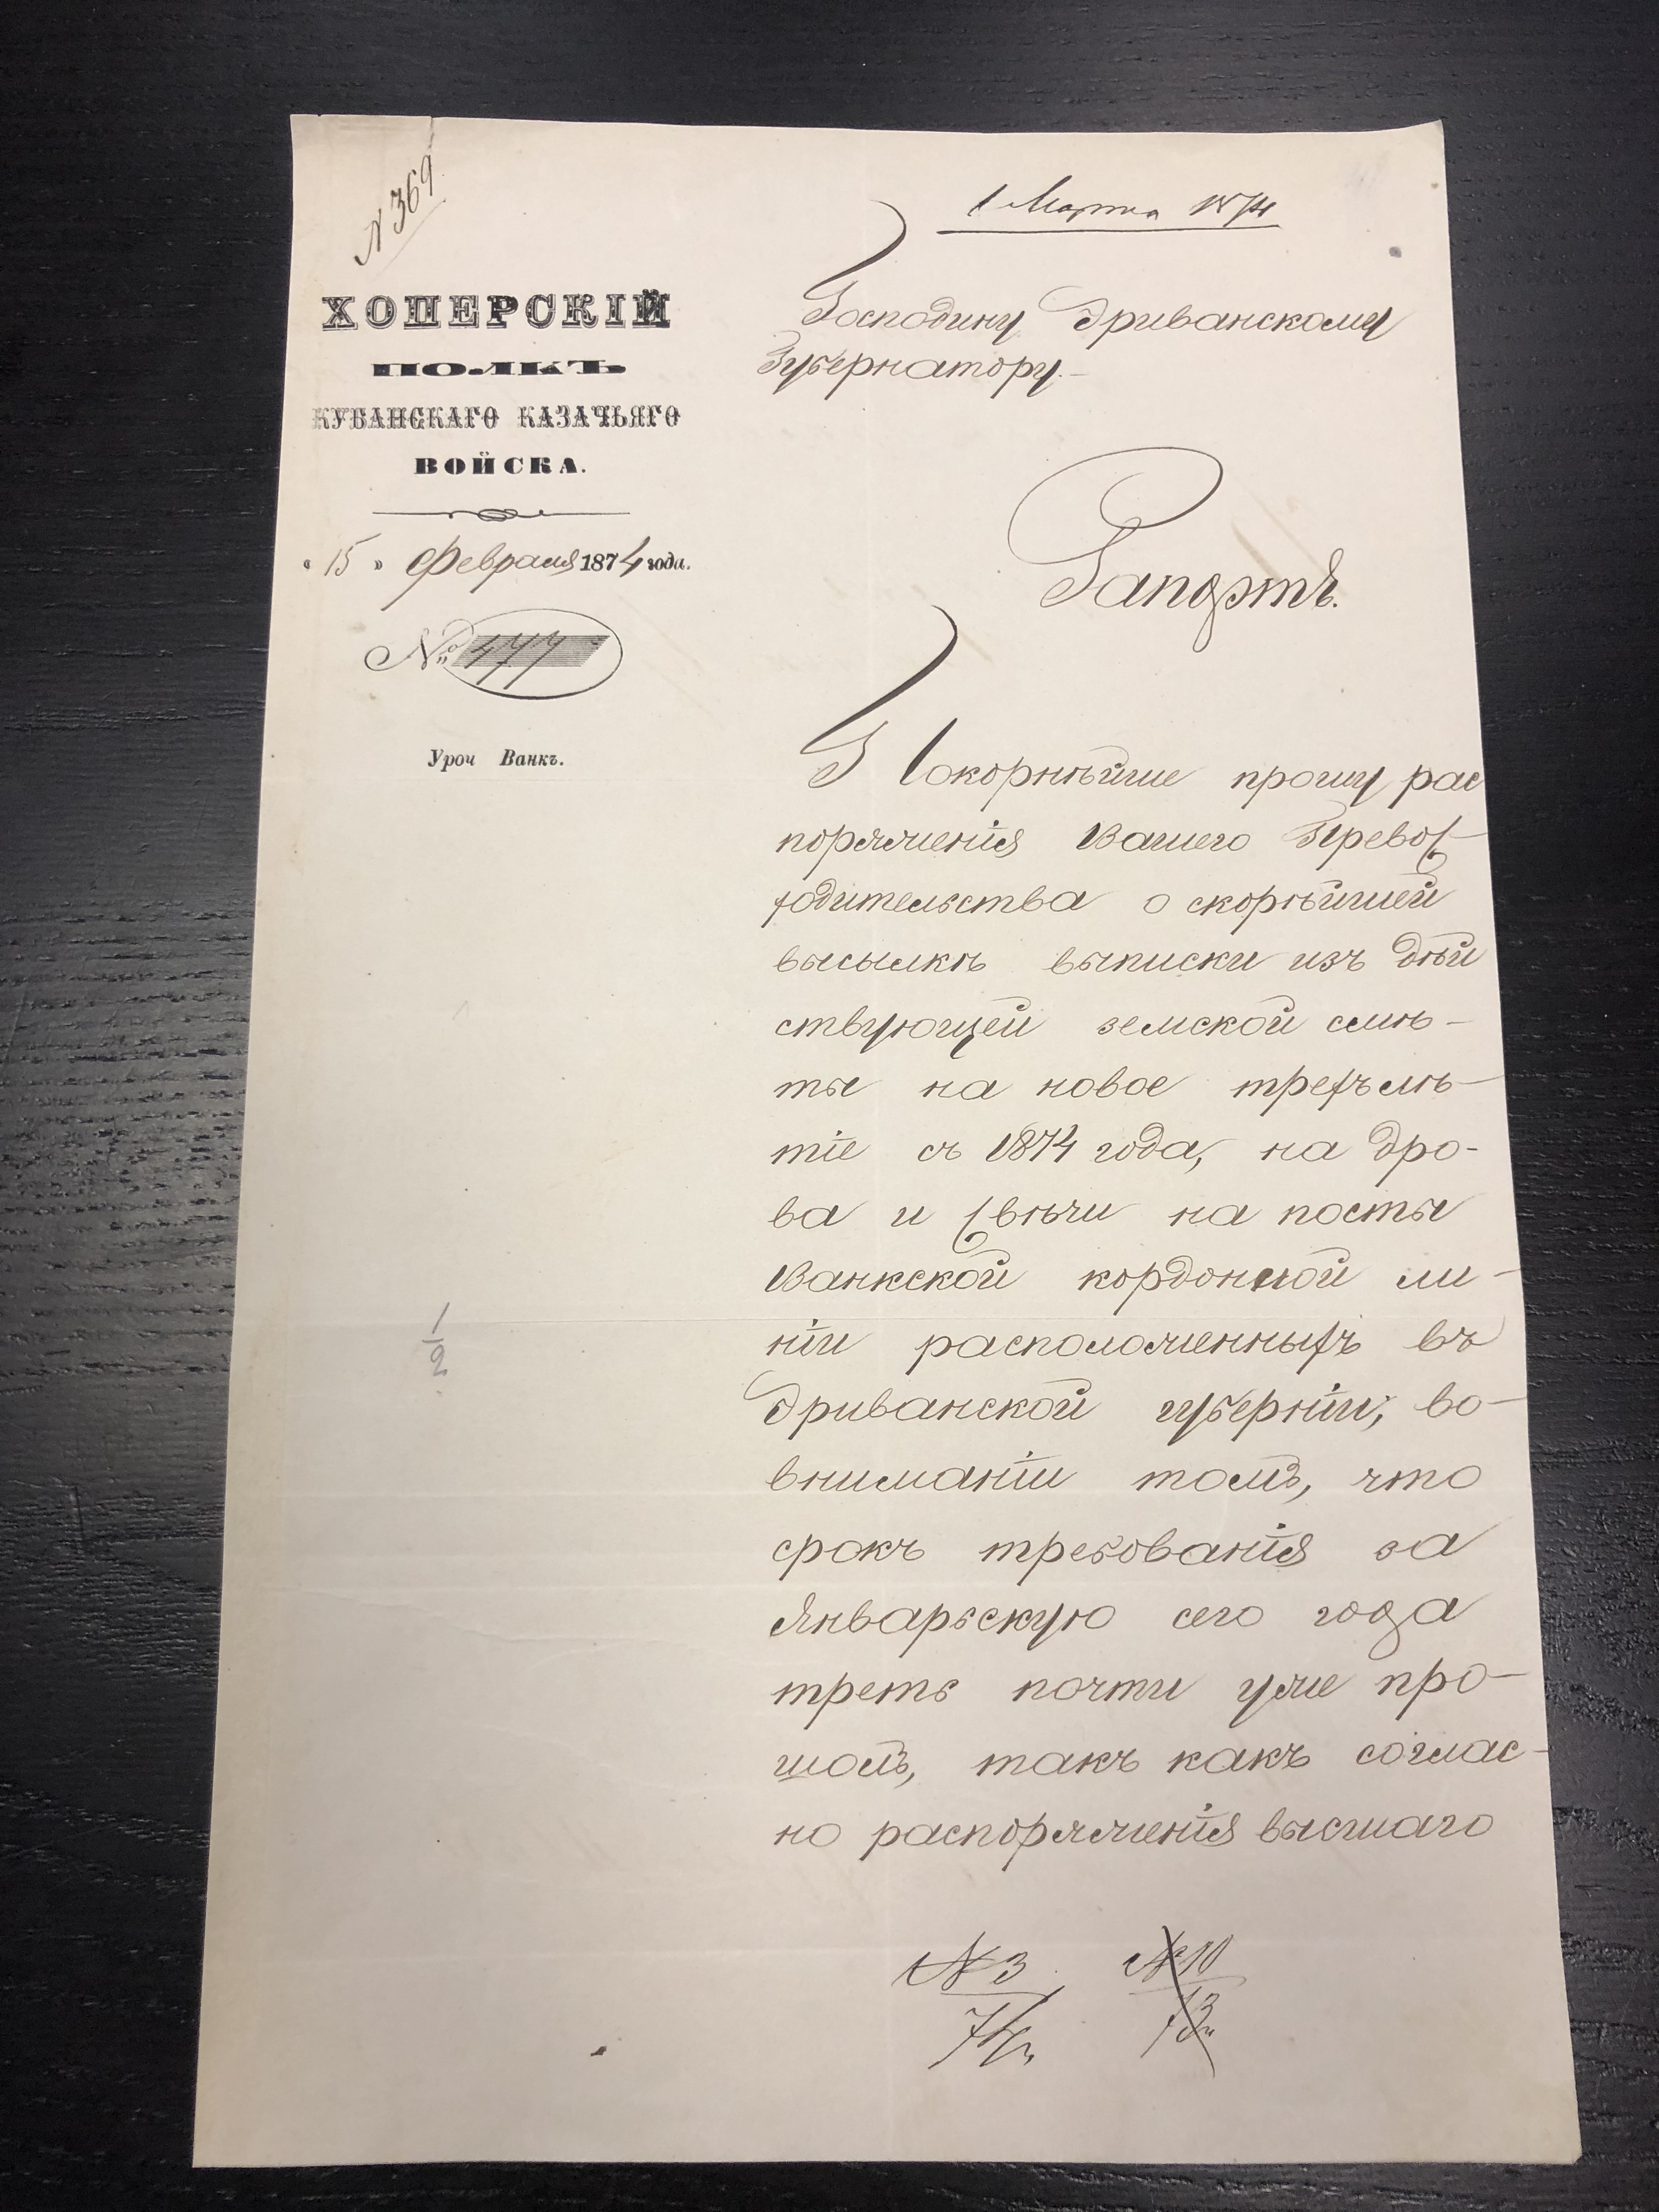 N 369
ХОПЕРСКІЙ
ПОЛКЪ
КУБАНСКАГО КАЗАЧЬЯГО
ВОЙСКА.
« 15 » Февраля 1874 года.
№ 477
Уроч Ванкъ.
1 Марта 1874
Господину Эриванскому
Губернатору.
Рапортъ.
Покорнѣйше прошу рас
поряженія Вашего Превос
ходительства о скорѣйшей
высылкѣ выписки изъ дѣй
ствующей земской смѣ-
ты на новое трехълѣ-
тіе съ 1874 года, на дро-
ва и свѣчи на посты
Ванкской кордонной ли-
ніи расположенныхъ въ
Эриванской губерніи, во-
вниманіи томъ, что
срокъ требованія за
Январьскую сего года
треть почти уже про-
шолъ, такъ какъ соглас-
но распоряженія высшаго
1/2
N 3
74
N 10
73